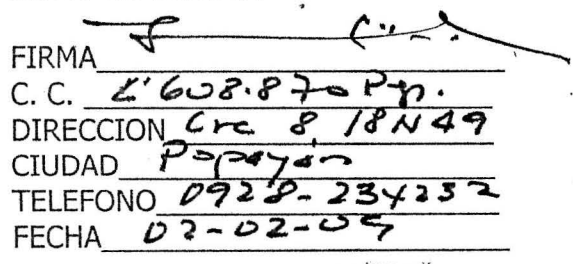 FIRMA
C. C. 608.870 Pp.
DIRECCION Cra 8, 18N49
CIUDAD Popayán
TELEFONO 0928-234232
FECHA 02-02-05